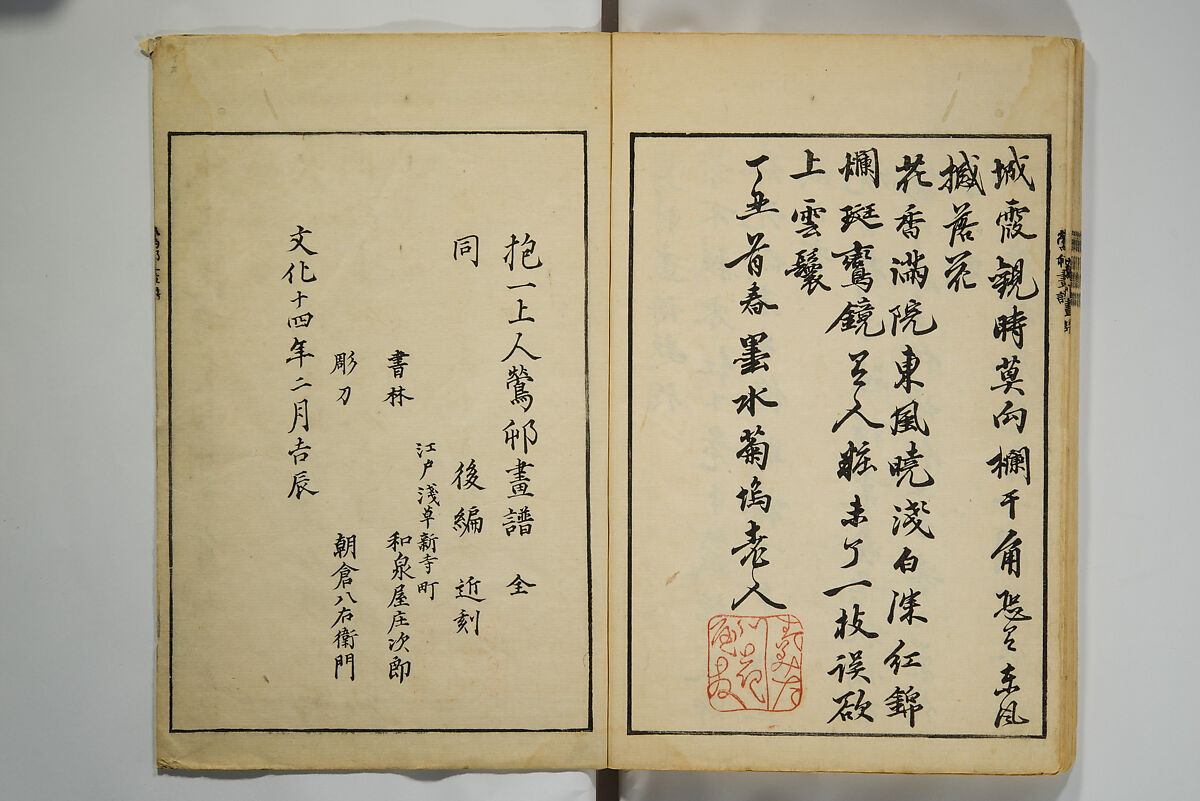 城霞観時莫向欄干角恐是東風
撼落花
花香満院東風暁浅白深紅錦
爛斑鸞鏡美人粧未了一枝誤欲
上雲鬟
丁丑首春墨水菊塢老人
抱一上人鶯邨畫譜 全
同 後編 近刻
江戸淺草新寺町
書林 和泉屋庄次郎
彫刀 朝倉八右衛門
文化十四年二月吉辰